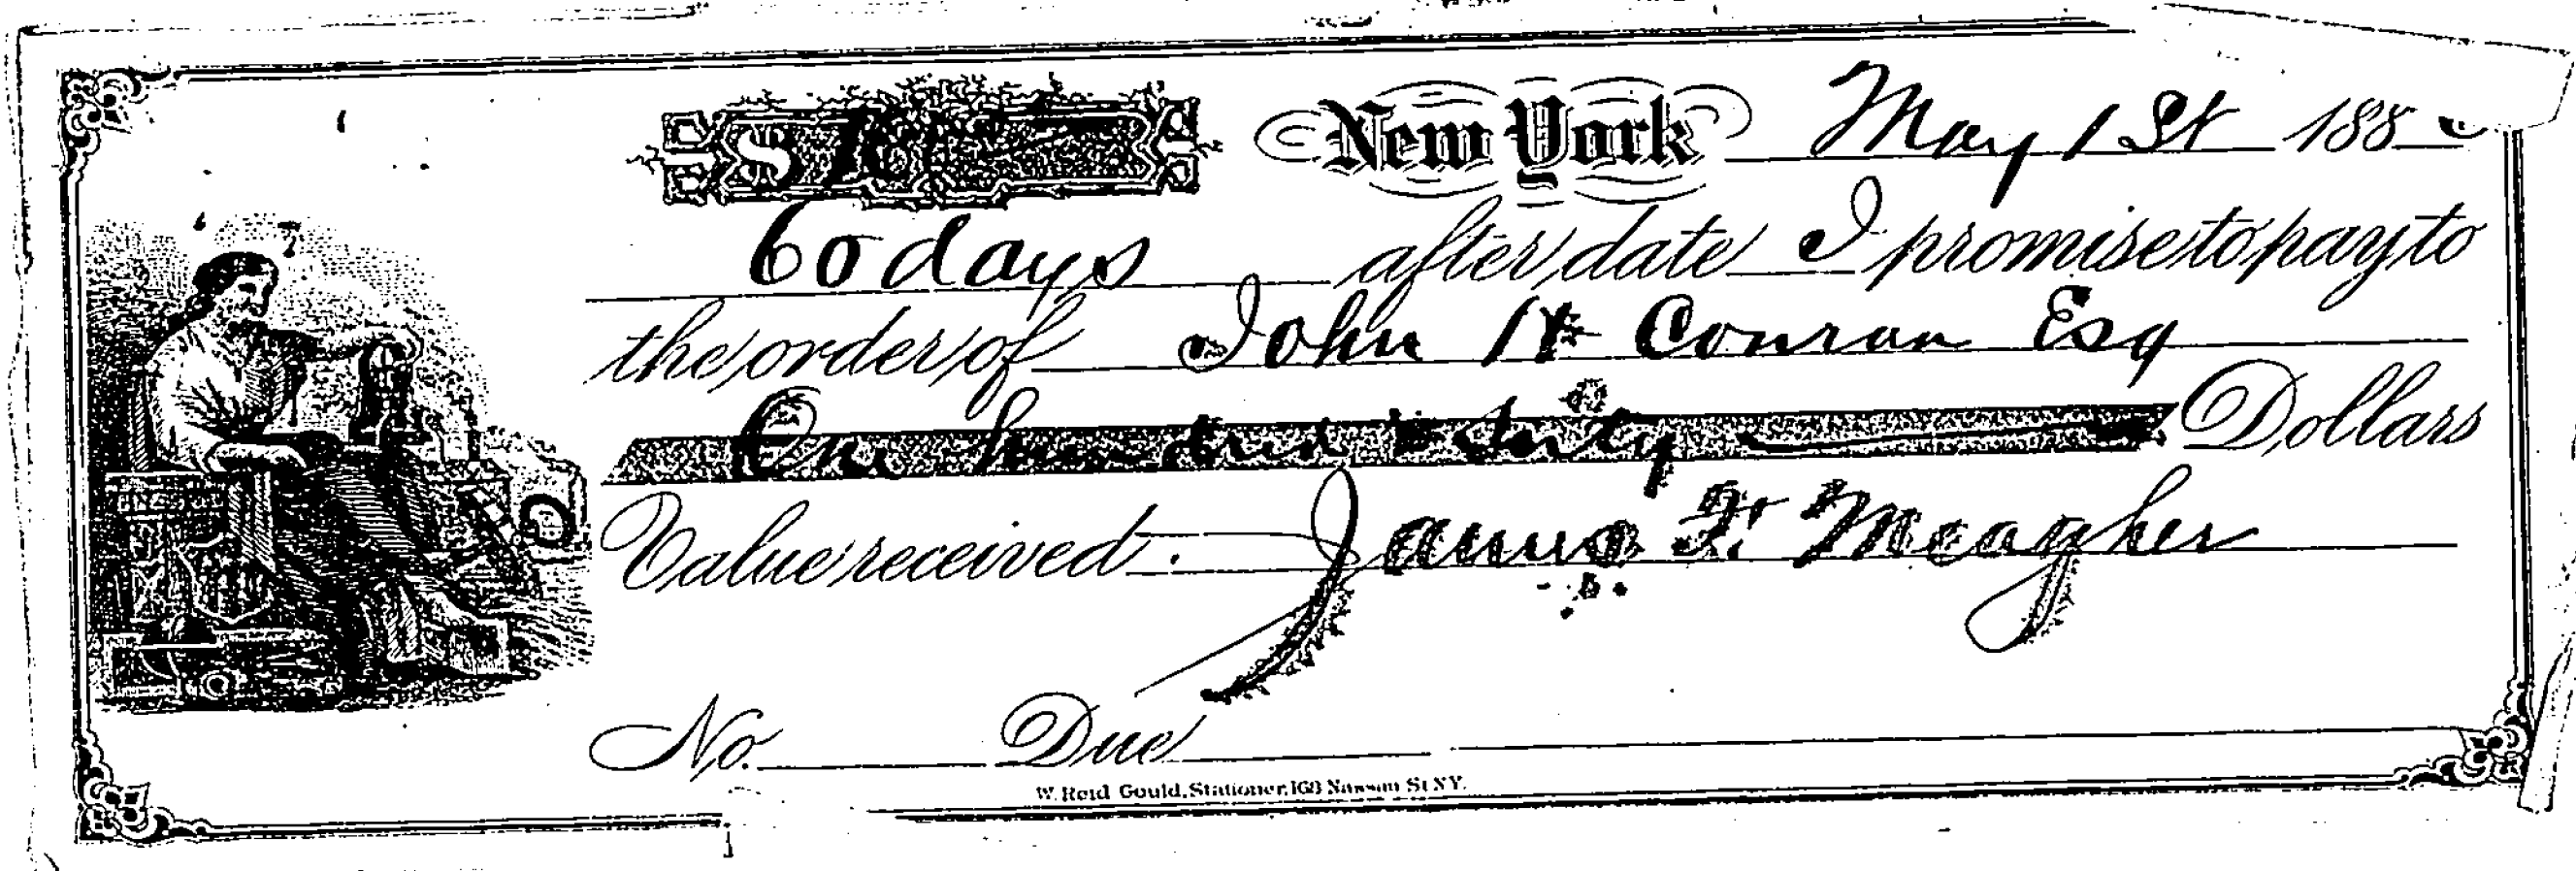 $ New York May 1 St 188
60 days after date I promise to pay to
the order of John H Conran Esq
One hundred & sixty Dollars
Value received. James F. Meagher
No. Due
W. Reid Gould, Stationer, 168 Nassau St N.Y.